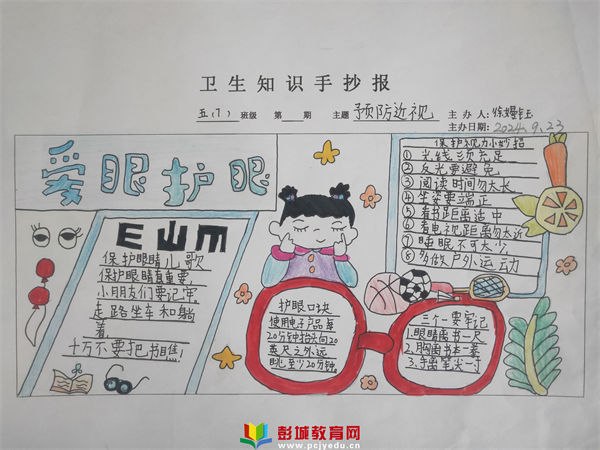 卫生知识手抄报
五(7) 班级 第 期 主题 预防近视 主办人:
主办日期: 2024.9.23
爱眼护眼
保护眼睛儿歌
保护眼睛真重要,
小朋友们要记牢,
走路坐车和躺
着
十万不要把书瞧!
护眼口诀
使用电子产品每
20分钟抬头向20
英尺之外远
眺至少20分钟。
三个一要牢记
1.眼睛离书一尺
2.胸离书本一拳
3.手离笔尖一寸
保护视力小妙招
①光线须充足
②反光要避免
③阅读时间勿太长
④坐姿要端正
⑤看书距离适中
⑥看电视距离勿太近
⑦睡眠不可太少
⑧多做户外运动
彭城教育网
www.pcjyedu.cn